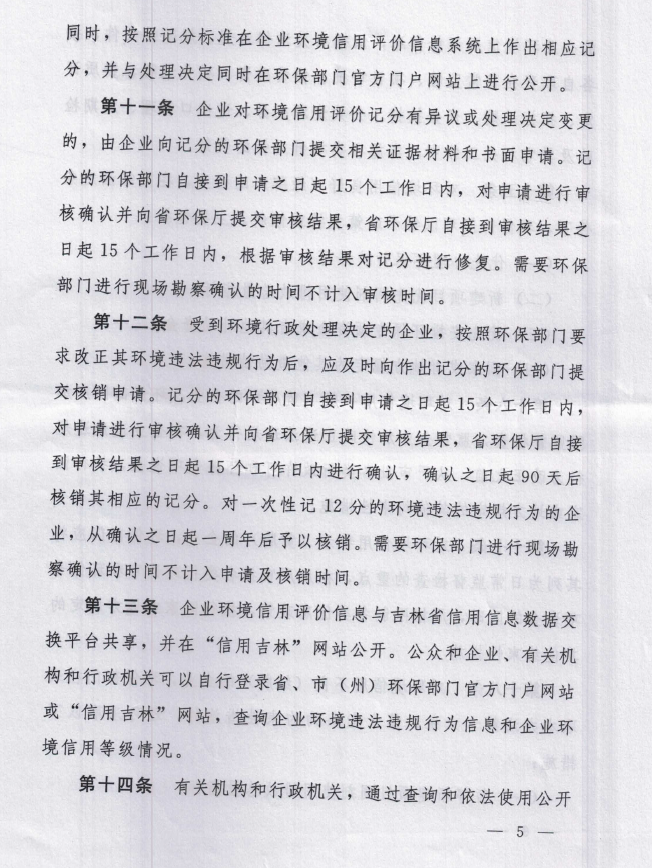 同时，按照记分标准在企业环境信用评价信息系统上作出相应记
分，并与处理决定同时在环保部门官方门户网站上进行公开。
第十一条 企业对环境信用评价记分有异议或处理决定变更
的，由企业向记分的环保部门提交相关证据材料和书面申请。记
分的环保部门自接到申请之日起15个工作日内，对申请进行审
核确认并向省环保厅提交审核结果，省环保厅自接到审核结果之
日起15个工作日内，根据审核结果对记分进行修复。需要环保
部门进行现场勘察确认的时间不计入审核时间。
第十二条 受到环境行政处理决定的企业，按照环保部门要
求改正其环境违法违规行为后，应及时向作出记分的环保部门提
交核销申请。记分的环保部门自接到申请之日起15个工作日内，
对申请进行审核确认并向省环保厅提交审核结果，省环保厅自接
到审核结果之日起15个工作日内进行确认，确认之日起90天后
核销其相应的记分。对一次性记12分的环境违法违规行为的企
业，从确认之日起一周年后予以核销。需要环保部门进行现场勘
察确认的时间不计入申请及核销时间。
第十三条 企业环境信用评价信息与吉林省信用信息数据交
换平台共享，并在“信用吉林”网站公开。公众和企业、有关机
构和行政机关可以自行登录省、市（州）环保部门官方门户网站
或“信用吉林”网站，查询企业环境违法违规行为信息和企业环
境信用等级情况。
第十四条 有关机构和行政机关，通过查询和依法使用公开
— 5 —